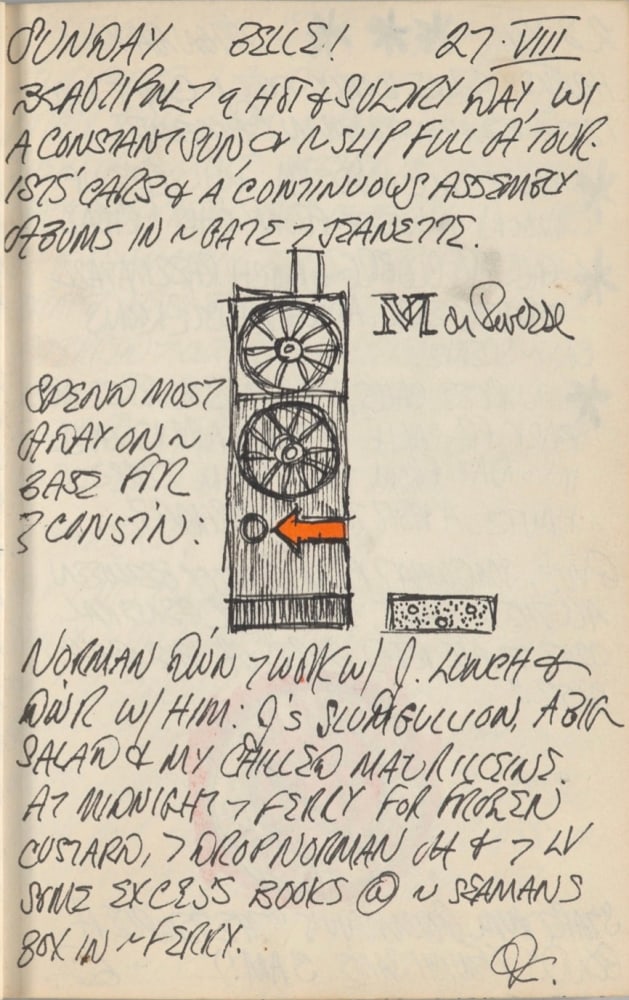 SUNDAY BELLE! 27·VIII
BEAUTIFUL 7 A HOT & SULTRY DAY, W/
A CONSTANT SUN, & ~ SLIP FULL OF TOUR-
ISTS' CARS & A CONTINUOUS ASSEMBLY
IN ~ GATE 7 JEANETTE.
M
SPEND MOST
A DAY ON ~
BASE FOR
CONST'N:
NORMAN DWN 7 WORK W/ J. LUNCH &
DINR W/ HIM: J'S SLUMGULLION, A BIG
SALAD & MY CHILLED
AT MIDNIGHT 7 FERRY FOR FROZEN
CUSTARD, 7 DROP NORMAN OFF & 7 LV
SOME EXCESS BOOKS @ ~ SEAMANS
BOX IN ~ FERRY.